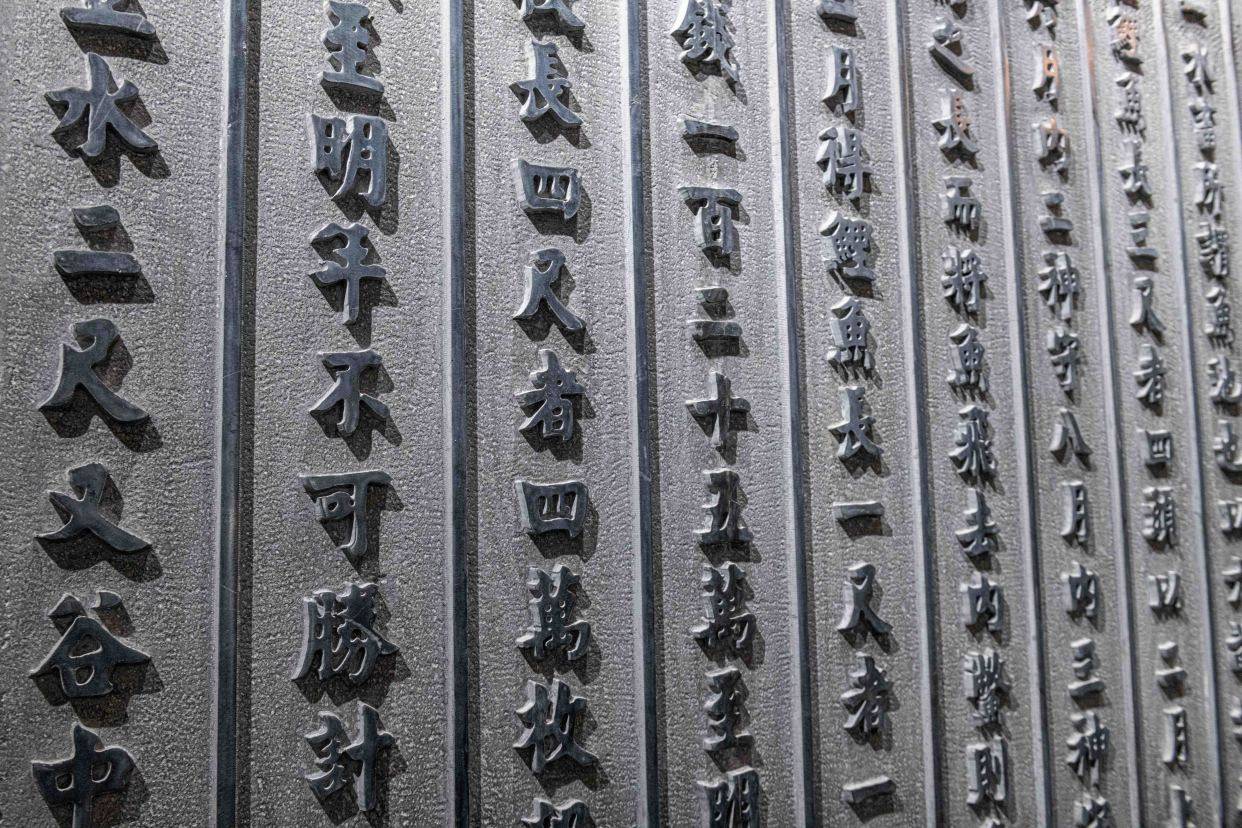 水畜所謂魚池也以六
鯉魚長三尺者四頭以二月上
六月内二神守八月内三神
之長而將魚飛去内鱉則
二月得鯉魚長一尺者一
錢一百二十五萬至明
長四尺者四萬枚
至明年不可勝計
立水二尺又谷中